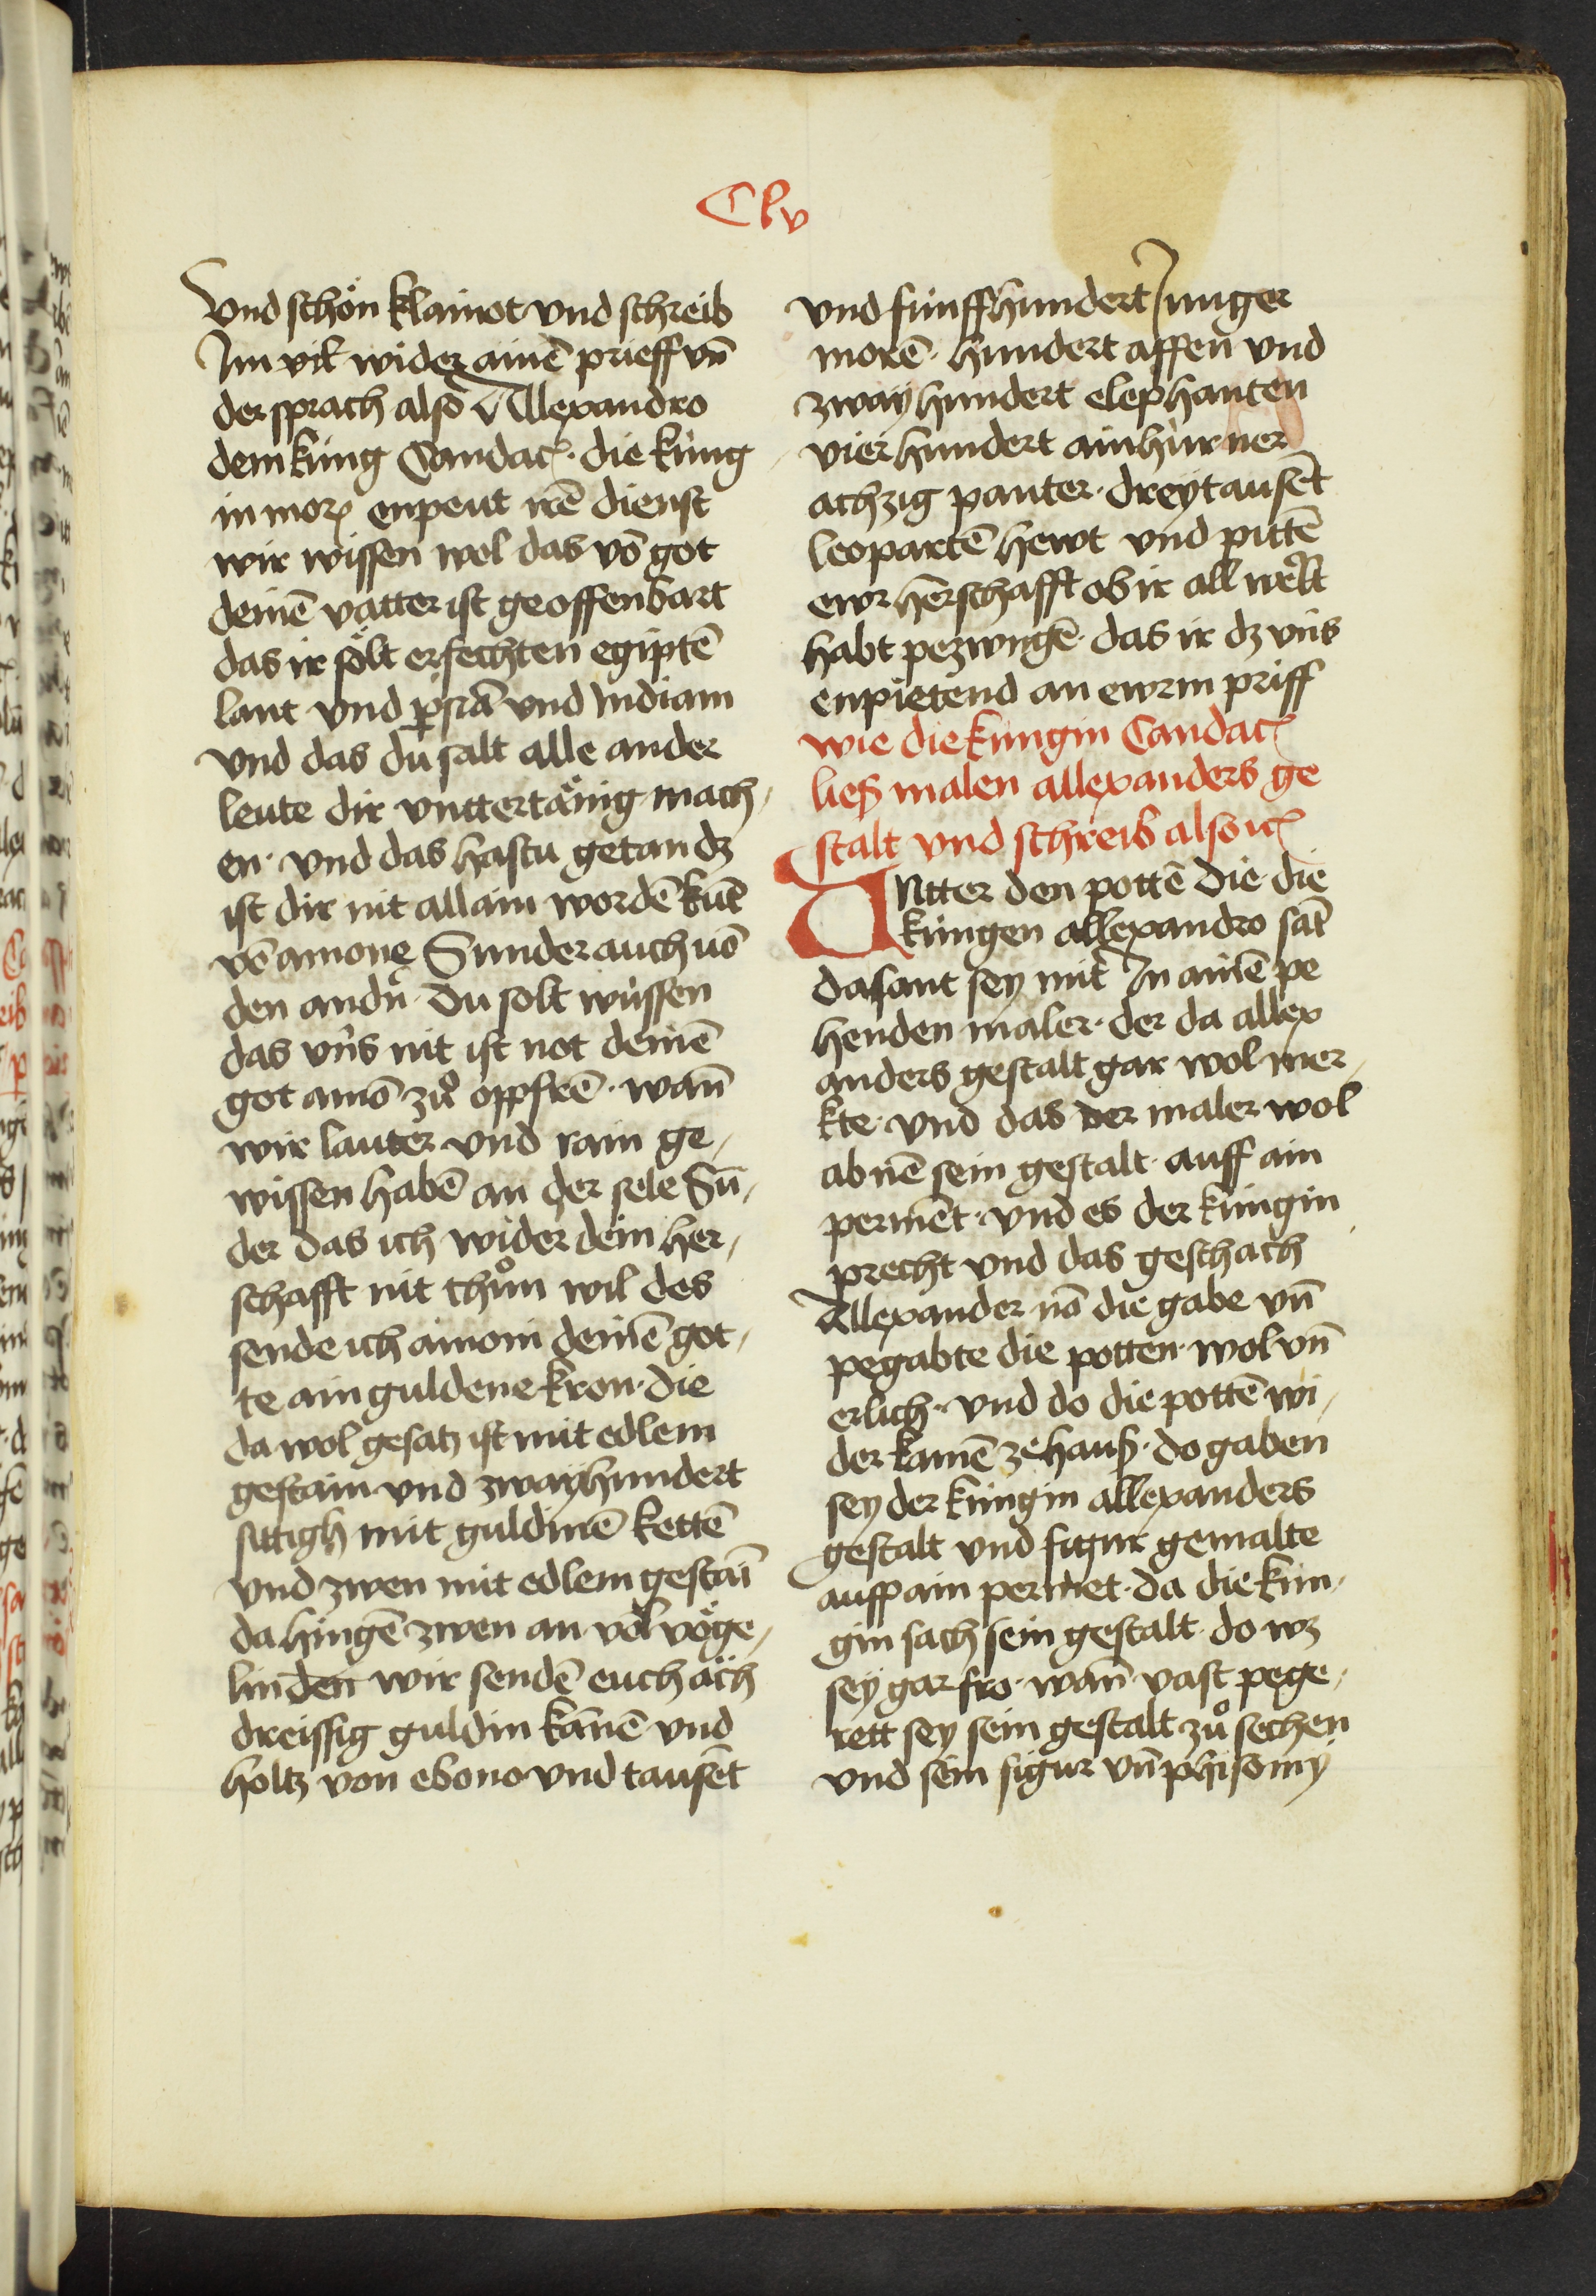 Clv
Vnd schön klainot vnd schreib
Im vil wider ainē prieff vn̄
der sprach also Allexandro
dem küng Candac̄. die küng
in morꝫ enpeut irē dienst
wir wissen wol das vō got
deinē vatter ist geoffenbart
das ir sölt erfechten egiptē
lant vnd ꝑsiā vnd Indiam
vnd das du salt alle ander
leute dir vnttertänig mach⸗
en · vnd das hastu getan dꝫ
ist dir nit allain wordē kūt
vō amone Sunder auch uō
den andn̄ · Du solt wüssen
das vn̄s nit ist not deinē
got amō zů oppfrē · wan̄
wir lauter vnd rain ge⸗
wissen habē an der sele Sū⸗
der das ich wider dein her⸗
schafft nit thůn wil des
sende ich amoni deinē got⸗
te ain guldene kron · die
da wol gesatz ist mit edlem
gestain vnd zwayhundert
sittigh mit guldinē kettē
vnd zwen mit edlem gestaī
da hingē zwen an vōl vöge⸗
linden wir sendē euch äch
dreissig guldin kānē vnd
holtz von ebono vnd tausēt
vnd fünffhundert Junger
morē · hundert affen vnd
zway hundert elephanten
vierhundert ainhürner
achzig panter · dreytausēt
leopartē hewt vnd pittē
ewr herschafft ob ir all welt
habt pezwngē · das ir dꝫ vn̄s
enpietend an ewrm priff
wie die küngin Candac̄
ließ malen allexanders ge
stalt vnd schreib also ic̄
VNtter den pottē die die
küngen allexandro sāt
da sant sey mit In ainē pe
henden maler · der da allex
anders gestalt gar wol mer⸗
kte · vnd das der maler wol
ab nē sein gestalt · auff ain
permēt · vnd es der küngin
precht vnd das geschach
Allexander nā die gabe vn̄
pegabte die potten · wol vn̄
erlich · vnd do die pottē wi⸗
der kamē ze hauß · do gaben
sey der küngin allexanders
gestalt vnd figur gemalte
auff ain permet · da die kün⸗
gin sach sein gestalt · do wꝫ
sey gar fro · wan̄ vast pege⸗
rett sey sein gestalt zů sechen
vnd sein figur vn̄ phisomy